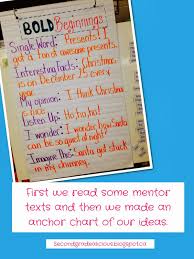 BOLD Beginnings
Single Word: Presents! I
got a ton of awesome presents.
Interesting Facts: Christmas
is on December 25 every
year.
My opinion: I think Christmas
is
Listen Up: Ho, Ho,
I wonder: I wonder how
santa
Imagine This: santa got stuck
in my chimney.
First we read some mentor
texts and then we made an
anchor chart of our ideas.
secondgradealicious.blogspot.ca